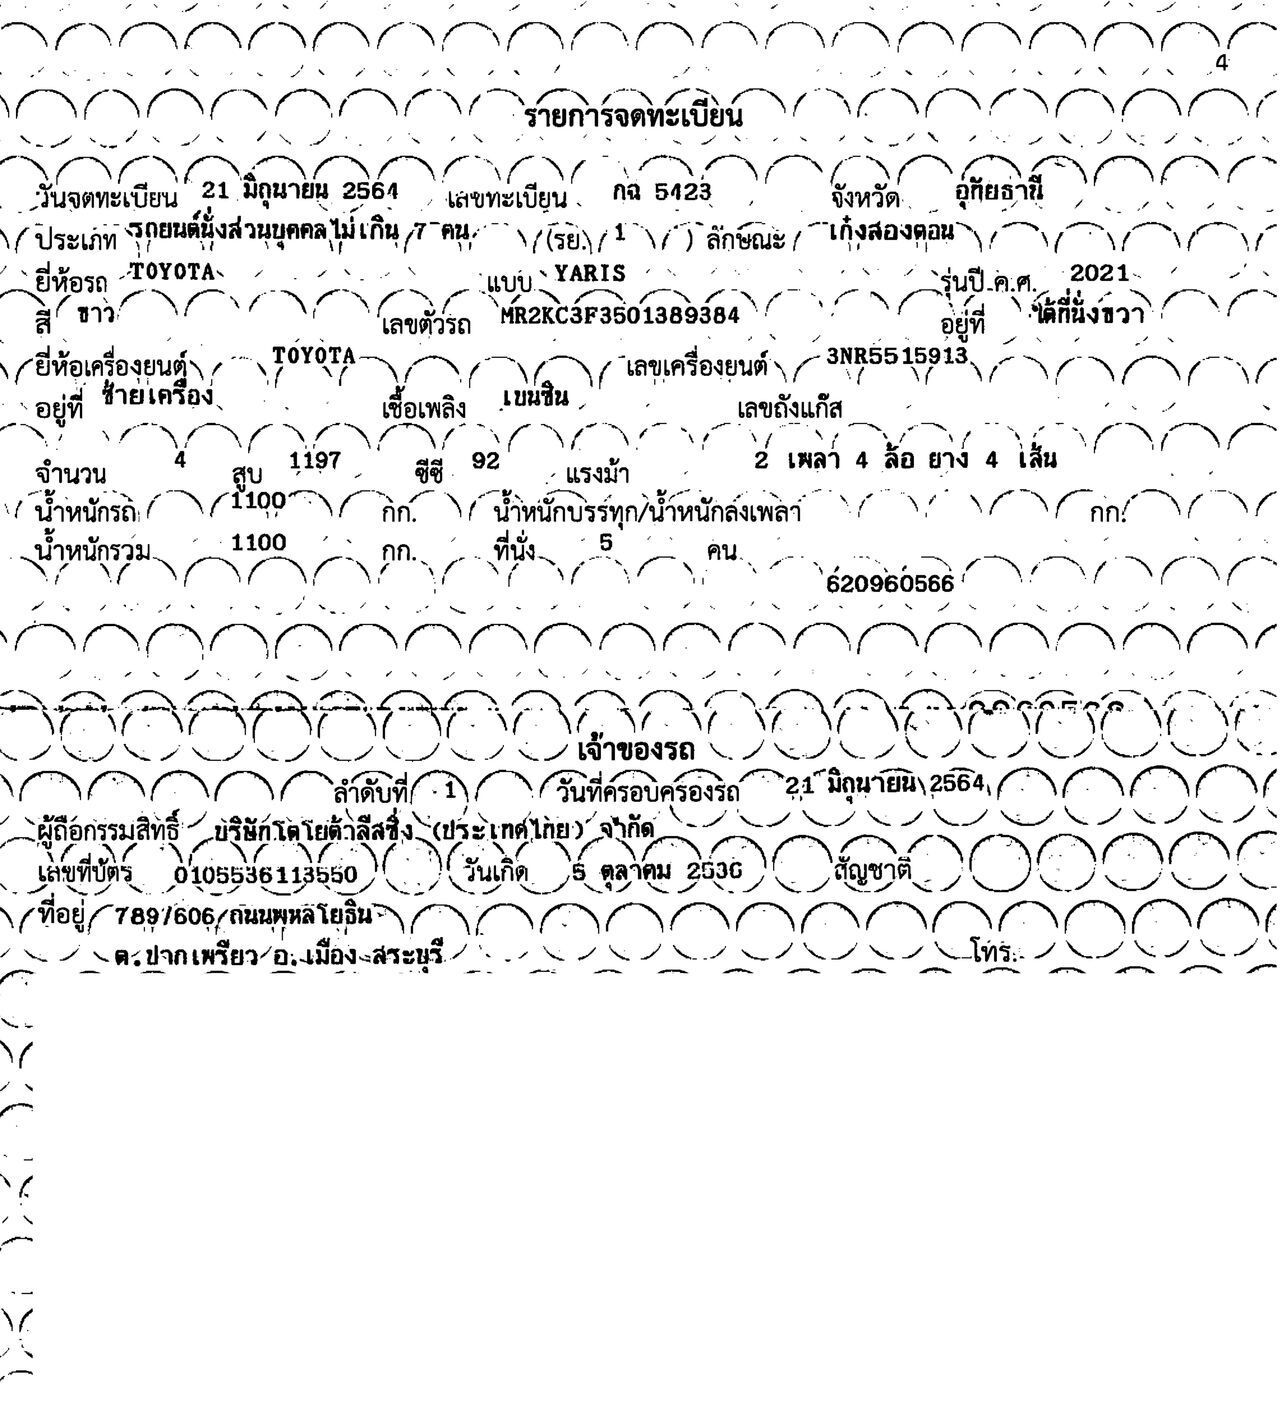 4
รายการจดทะเบียน
วันจดทะเบียน 21 มิถุนายน 2564 เลขทะเบียน กฉ 5423 จังหวัด อุทัยธานี
ประเภท รถยนต์นั่งส่วนบุคคลไม่เกิน 7 คน (รย. 1 ) ลักษณะ เก๋งสองตอน
ยี่ห้อรถ TOYOTA แบบ YARIS รุ่นปี ค.ศ. 2021
สี ขาว เลขตัวรถ MR2KC3F3501389384 อยู่ที่ ใต้ที่นั่งขวา
ยี่ห้อเครื่องยนต์ TOYOTA เลขเครื่องยนต์ 3NR5515913
อยู่ที่ ซ้ายเครื่อง เชื้อเพลิง เบนซิน เลขถังแก๊ส
จำนวน 4 สูบ 1197 ซีซี 92 แรงม้า 2 เพลา 4 ล้อ ยาง 4 เส้น
น้ำหนักรถ 1100 กก. น้ำหนักบรรทุก/น้ำหนักลงเพลา กก.
น้ำหนักรวม 1100 กก. ที่นั่ง 5 คน
620960566
เจ้าของรถ
ลำดับที่ 1 วันที่ครอบครองรถ 21 มิถุนายน 2564
ผู้ถือกรรมสิทธิ์ บริษัทโตโยต้าลีสซิ่ง (ประเทศไทย) จำกัด
เลขที่บัตร 0105536113550 วันเกิด 5 ตุลาคม 2536 สัญชาติ
ที่อยู่ 789/606 ถนนพหลโยธิน
ต.ปากเพรียว อ.เมือง สระบุรี โทร.